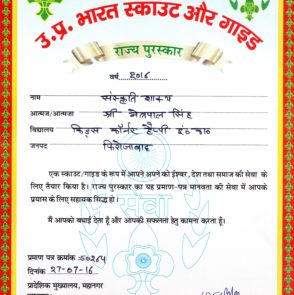 उ.प्र. भारत स्काउट और गाइड
राज्य पुरस्कार
वर्ष 2016
नाम संस्कृति
आत्मज/आत्मजा श्री नेत्रपाल सिंह
विद्यालय किड्स कॉर्नर हैप्पी
जनपद फिरोजाबाद
एक स्काउट/गाइड के रूप में आपने अपने को ईश्वर, देश तथा समाज की सेवा के
लिए तैयार किया है। राज्य पुरस्कार का यह प्रमाण-पत्र मानवता की सेवा में आपके
प्रयास के लिए सहायक सिद्ध हो।
सेवा
मैं आपको बधाई देता हूँ और आपकी सफलता हेतु कामना करता हूँ।
प्रमाण पत्र क्रमांक 50254
दिनांक 27-07-16
प्रादेशिक मुख्यालय, महानगर